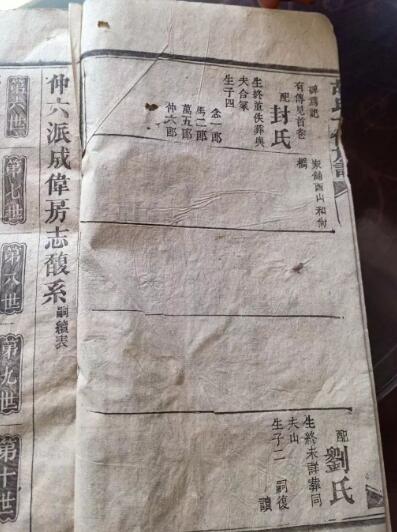 碑爲記
有傳見首卷
配封氏
生終並佚葬與
夫合冢
生子四
念一郎
馬二郎
萬五郎
仲六郎
配劉氏
生終未詳葬同
夫山
生子二
嗣復
仲六派成偉房志馥系
嗣續表
第六世
第七世
第八世
第九世
第十世